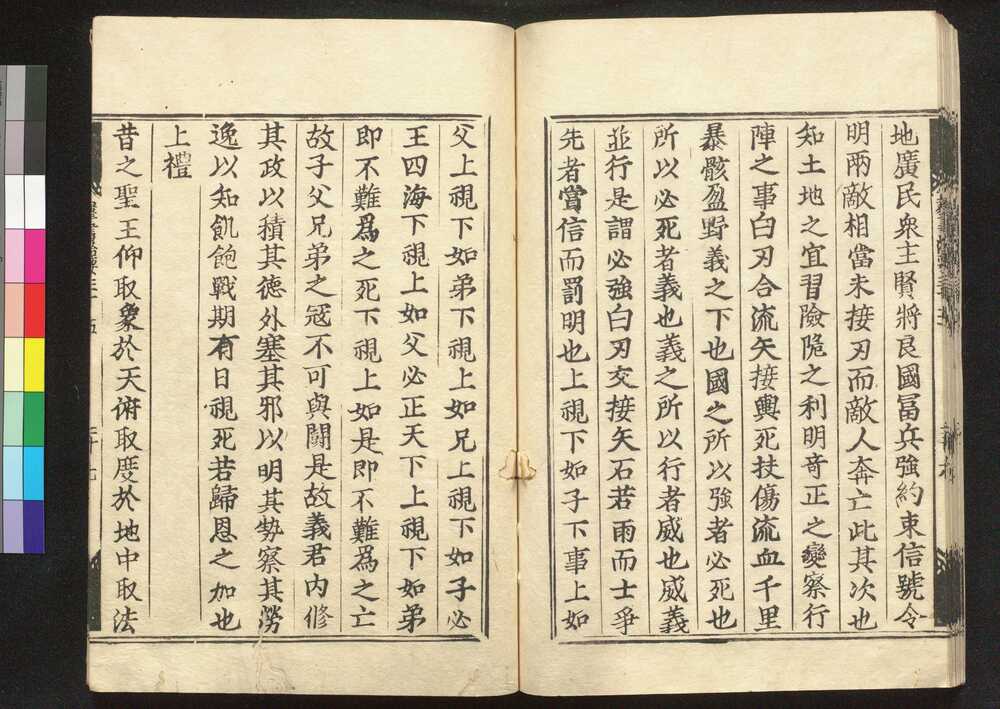 地廣民衆主賢將良國冨兵強約束信號令
明兩敵相當未接刃而敵人奔亡此其次也
知土地之宜習險隘之利明竒正之變察行
陣之事白刃合流矢接輿死扶傷流血千里
暴骸盈野義之下也國之所以強者必死也
所以必死者義也義之所以行者威也威義
並行是謂必強白刃交接矢石若雨而士爭
先者賞信而罰明也上視下如子下事上如
父上視下如弟下視上如兄上視下如子必
王四海下視上如父必正天下上視下如弟
即不難爲之死下視上如是即不難爲之亡
故子父兄弟之冦不可與鬪是故義君内修
其政以積其德外塞其邪以明其勢察其勞
逸以知飢飽戰期有日視死若歸恩之加也
上禮
昔之聖王仰取象於天俯取度於地中取法